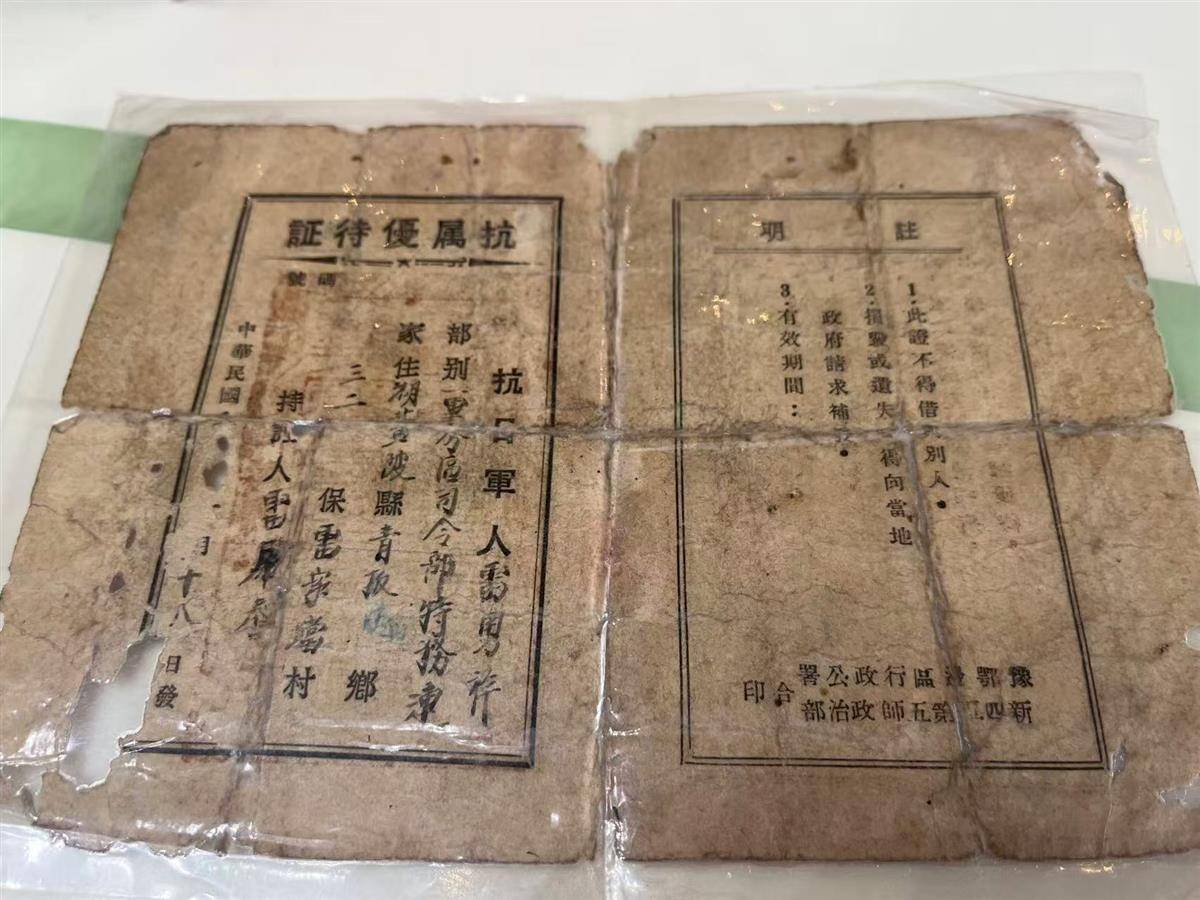 抗属優待証
碼號
抗日軍人雷勇
部别軍分區司令部特務連
家住湖黄陂縣青鄉
三二保雷家壋村
持証人雷
中華民國 月十八日發
註明
1.此證不得借别人.
2.損毀或遺失得向當地
政府請求補
3.有效期間:
豫鄂邊區行政公署
新四軍第五師政治部
合印